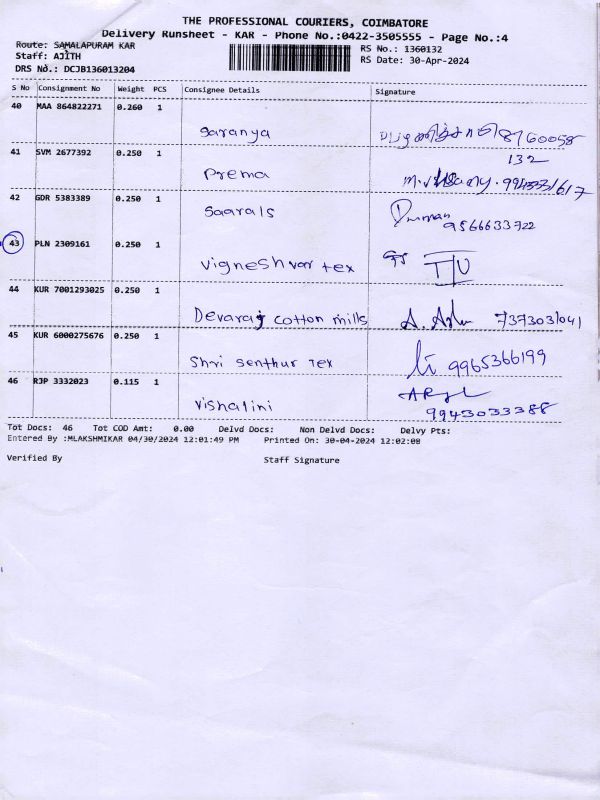 THE PROFESSIONAL COURIERS, COIMBATORE
Delivery Runsheet - KAR - Phone No.:0422-3505555 - Page No.:4
Route: SAMALAPURAM KAR
RS No.: 1360132
Staff: AJITH
RS Date: 30-Apr-2024
DRS No.: DCJB136013204
S No Consignment No Weight PCS Consignee Details Signature
40 MAA 864822271 0.260 1
Saranya
8760058
132
41 SVM 2677392 0.250 1
Prema
42 GDR 5383389 0.250 1
Saarals
9566633722
43 PLN 2309161 0.250 1
Vigneshvar tex
44 KUR 7001293025 0.250 1
Devaraj cotton mills 7373031041
45 KUR 6000275676 0.250 1
Shri Senthur Tex 9965366199
46 RJP 3332023 0.115 1
Vishalini
9943033388
Tot Docs: 46 Tot COD Amt: 0.00 Delvd Docs: Non Delvd Docs: Delvy Pts:
Entered By :MLAKSHMIKAR 04/30/2024 12:01:49 PM Printed On: 30-04-2024 12:02:08
Verified By Staff Signature